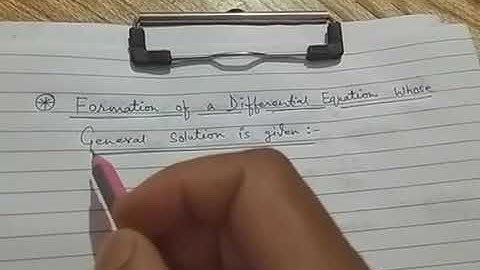 Formation of a Differential Equation Whose
General Solution is given :-